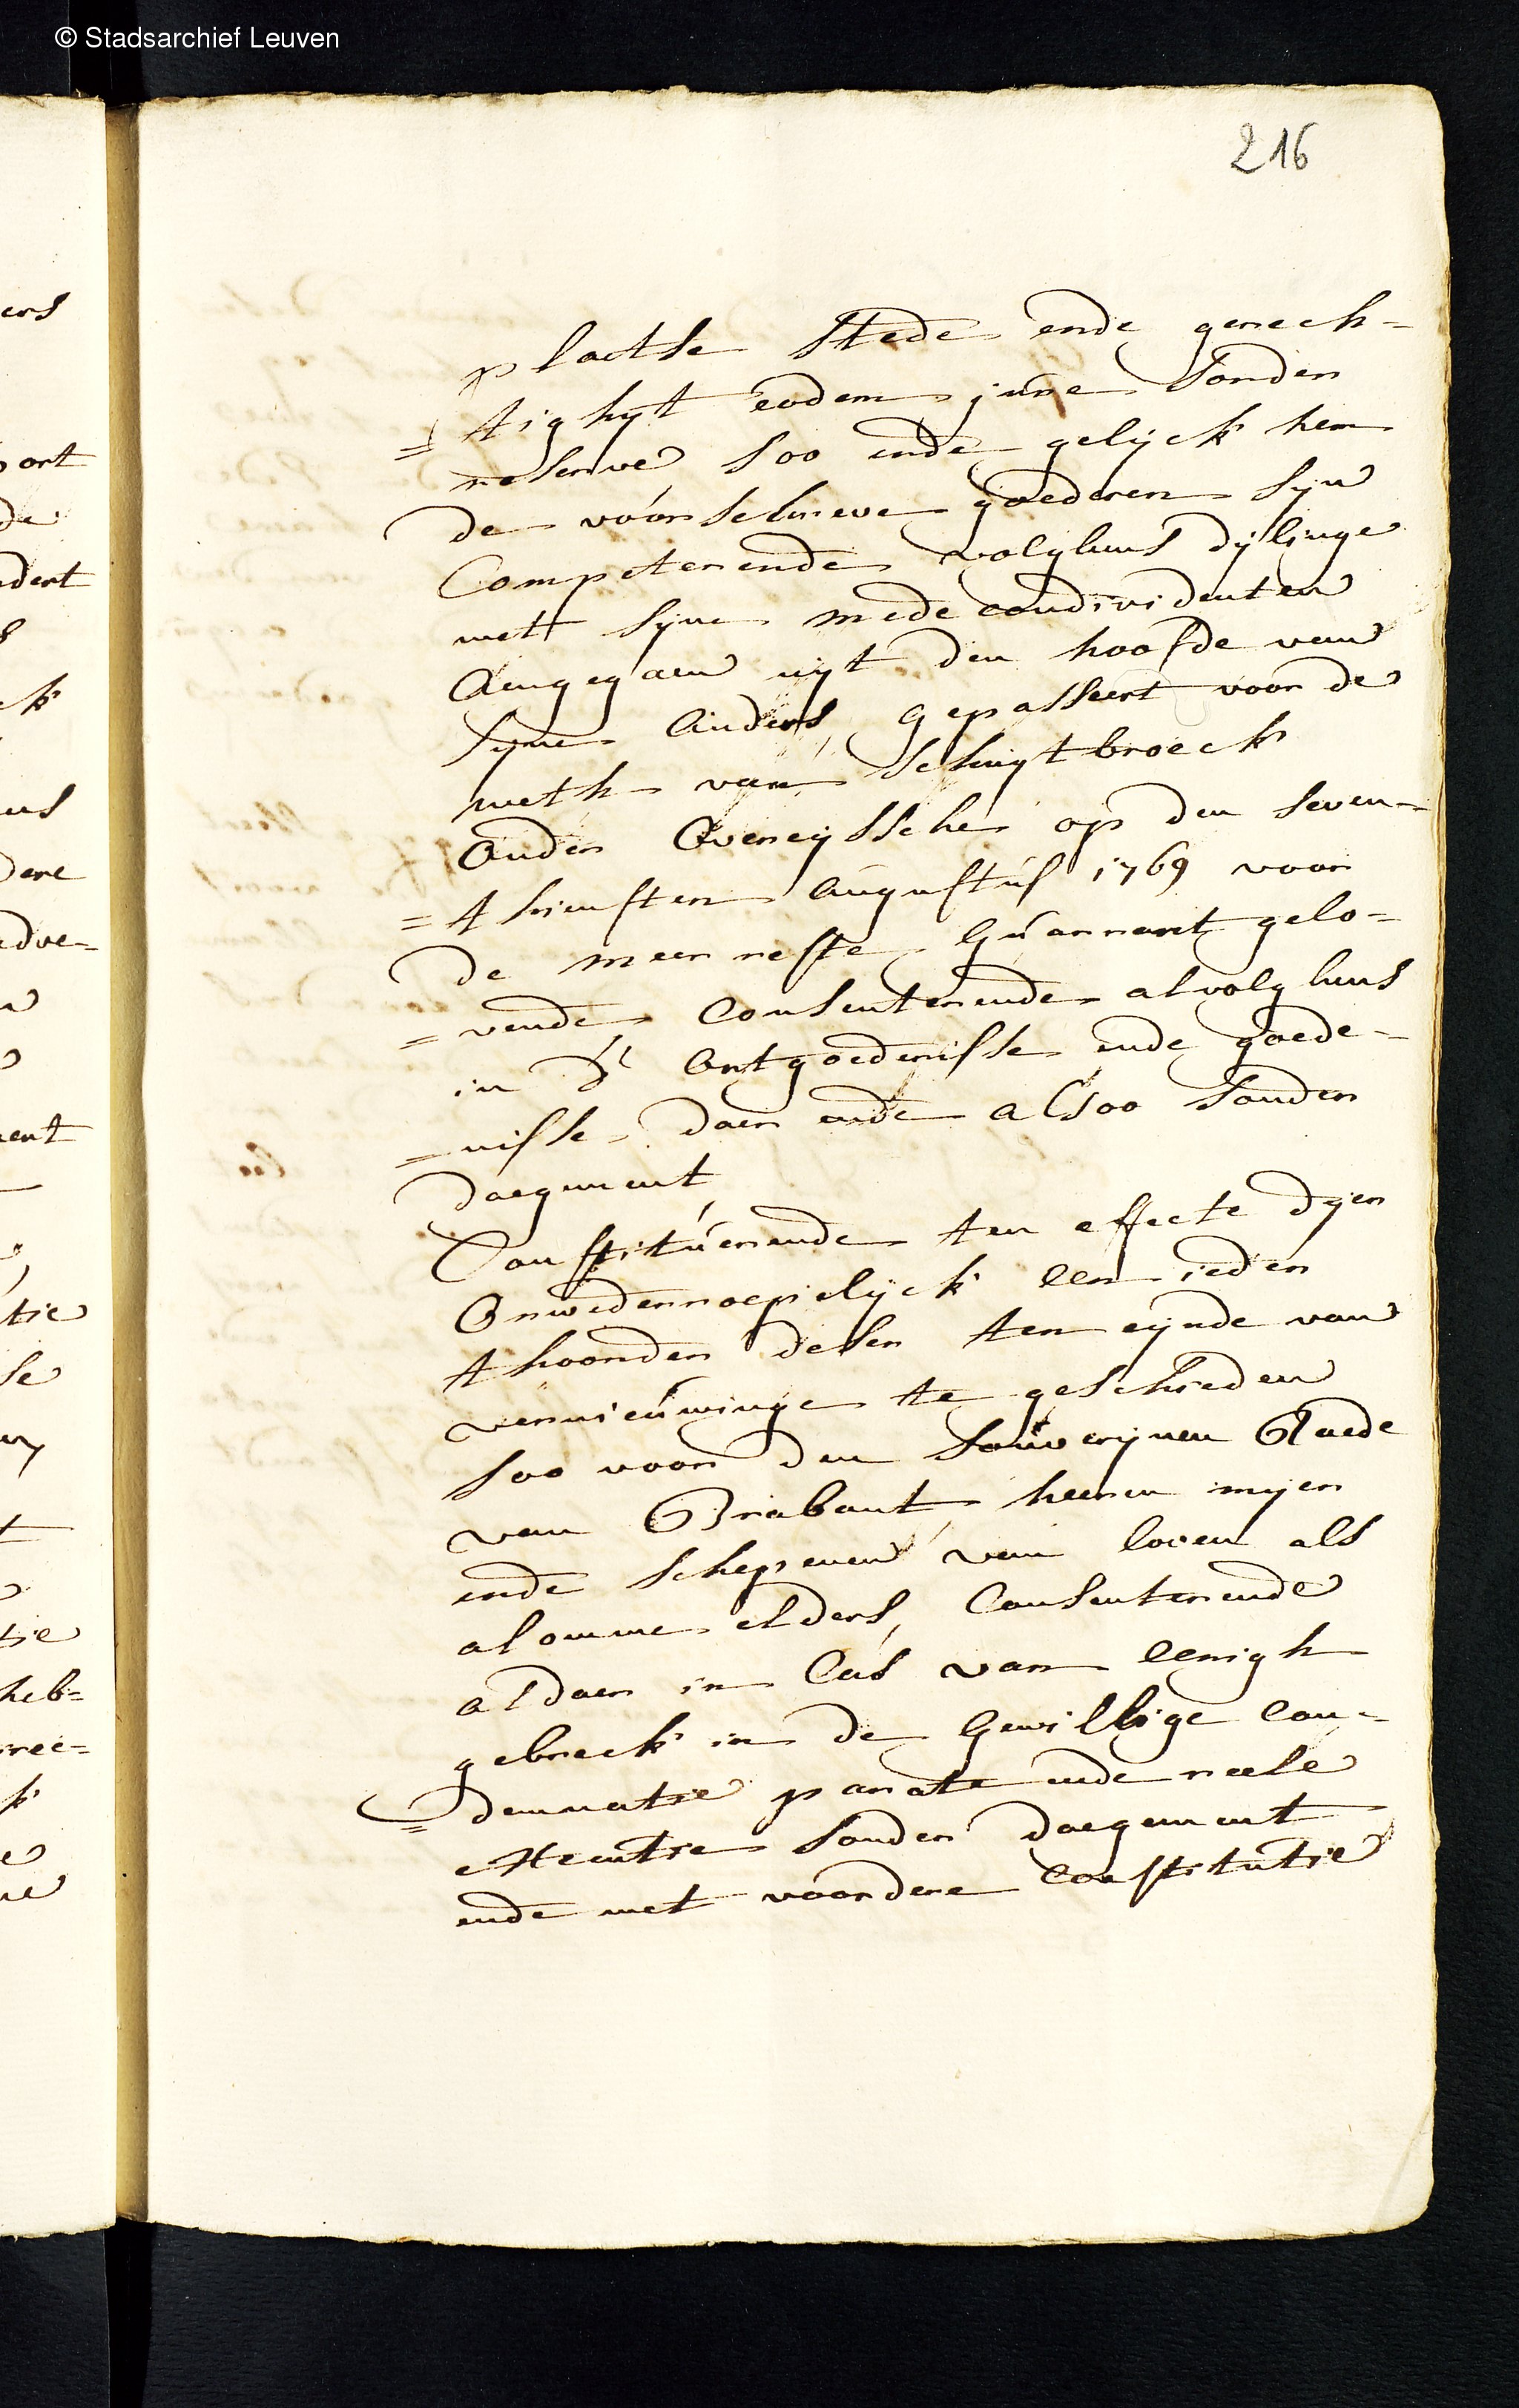 © Stadsarchief Leuven
216
plactse stede ende gerech=
=tighyt eodem jure sonder
reserve soo ende gelijck hem
de voorschreve goederen syn
Competerende volghens dijlinge
mett syne mede condividenten
Aengegaen uijt den hoofde van
syne auders, gepasseert voor de
weth van schuytbroeck
onder Overeijssche op den seven=
=thiensten augustus 1769 voor
de meerreste Guarrant gelo=
=vende Consenterende alvolghens
in d' ontgoedenisse ende goede=
=nisse daer ende alsoo sonder
daegement
Constituerende ten effecte dyen
Onwederroepelijck een ieder
thoonder deser ten eijnde van
vernieuwinge te geschieden
soo voor den souverijnen Raede
van Brabant, heeren meijer
ende schepenen van loven als
alomme elders, Consenterende
aldaer in Cas van eenigh
gebreck in de Gewillige Con=
=demnatie parate ende reele
executie sonder daegement
ende met voordere Constitutie
ers
ort
de
ndert
ck
dere
edve=
ent
tie
se
tie
heb=